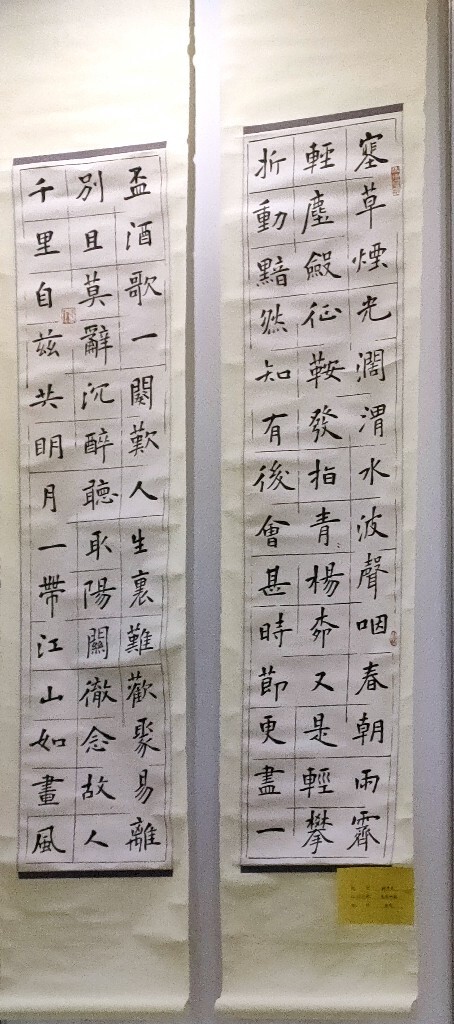 塞草煙光濶渭水波聲咽春朝雨霽
輕塵斂征鞍發指青〻楊桺又是輕攀
折動黯然知有後會甚時節更盡一
盃酒歌一闋歎人生裏難歡聚易離
別且莫辭沉醉聽取陽關徹念故人
千里自兹共明月一帶江山如畫風